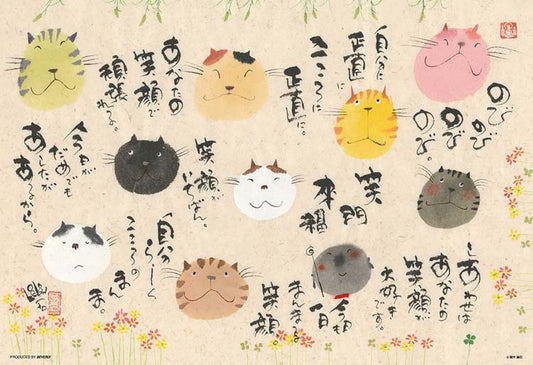 のび
のび
のび
のび。
自分に
正直に
こころに
正直に。
あなたの
笑顔で
頑張
れる。
笑門
来福
笑顔が
いちばん。
今日が
だめでも
あしたが
あるから。
しあわせは
あなたの
笑顔が
大好き
です。
今日も
一日
まんまる
笑顔。
自分
らしく
こころの
まん
ま。
PRODUCED BY BEVERLY